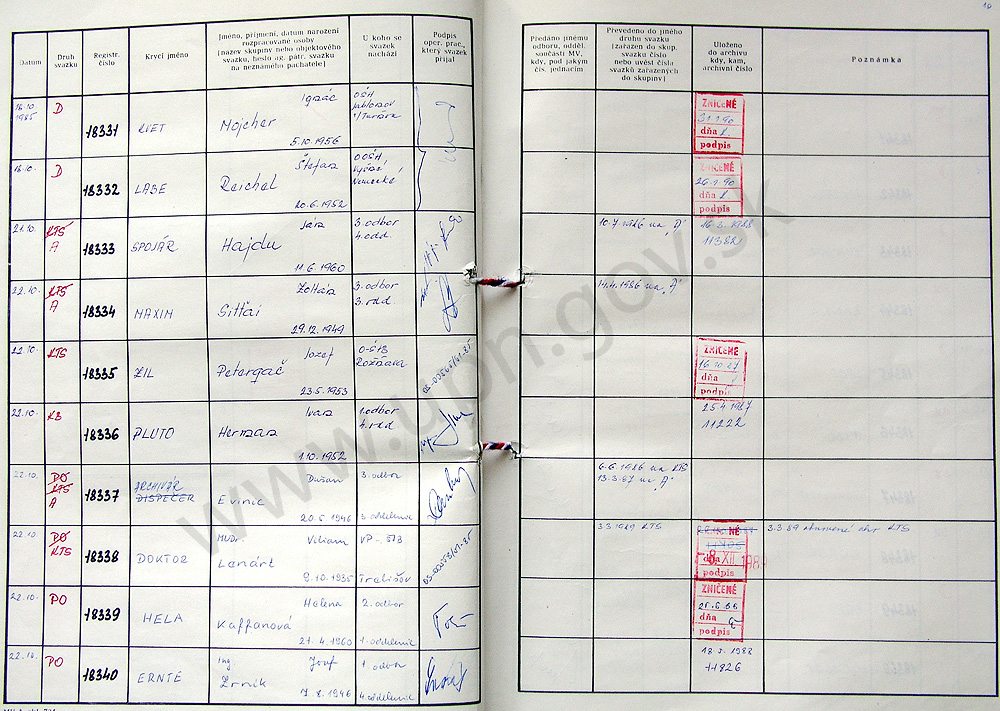 10
Datum
Druh svazku
Registr. číslo
Krycí jméno
Jméno, příjmení, datum narození
rozpracované osoby
(název skupiny nebo objektového
svazku, heslo ag. pátr. svazku
na neznámého pachatele)
U koho se
svazek
nachází
Podpis
oper. prac.,
který svazek
přijal
Předáno jinému
odboru, odděl.
součásti MV,
kdy, pod jakým
čís. jednacím
Převedeno do jiného
druhu svazku
(zařazen do skup.
svazku číslo
nebo uvést čísla
svazků zařazených
do skupiny)
Uloženo
do archivu
kdy, kam,
archivní číslo
Poznámka
18.10 1985 D 18331 KVET Ignác Mojcher 5.10.1956 OŠH
ZNIČENÉ 31.1.90 dňa podpis
18.10. D 18332 LABE Štefan Reichel 20.6.1952 OOŠH
ZNIČENÉ 26.1.90 dňa podpis
21.10. KTS A 18333 SPOJÁR Hajdu 11.6.1960 3.odbor 4.odd.
10.7.1986 na "A" 16.2.1988 11382
22.10. KTS A 18334 MAXIM Zoltán Sittai 29.12.1949 3.odbor
14.4.1986 na "A"
22.10. KTS 18335 ŽIL Jozef Petergáč 23.5.1953 O-ŠTB Rožňava
ZNIČENÉ 16.10.87 dňa podpis
22.10. KB 18336 PLUTO Ivan Herman 1.10.1952 1.odbor
25.4.1987 11222
22.10. PO KTS A 18337 ARCHIVÁR DISPEČER Dušan Evinic 20.5.1946 3.odbor 3.oddelenie
6.6.1986 na KTS
13.3.87 na "A"
22.10. PO KTS 18338 DOKTOR MUDr. Viliam Lenárt 9.10.1935 Trebišov
3.3.1989 KTS 8. XII. 1989 dňa podpis 3.3.89
22.10. PO 18339 HELA Helena Kaffanová 21.4.1960 2.odbor 1.oddelenie
ZNIČENÉ dňa podpis
22.10. PO 18340 ERNTE Ing. Jozef Žrnik 7.8.1946 1.odbor 4.oddelenie
18.2.1988 11826
www.upn.gov.sk